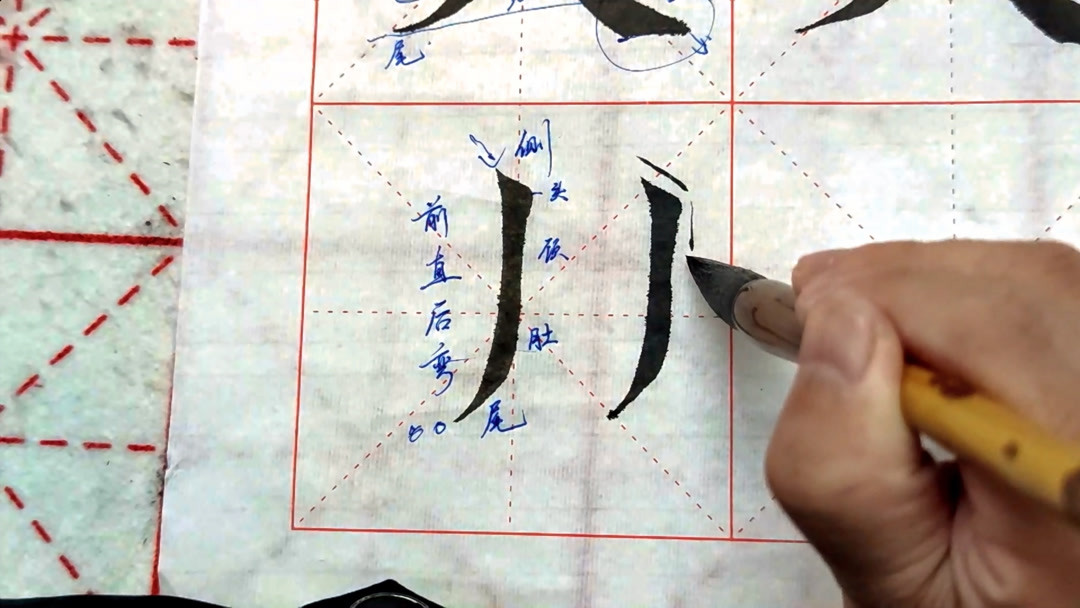 尾
侧
头
颈
肚
尾
前直后弯
60